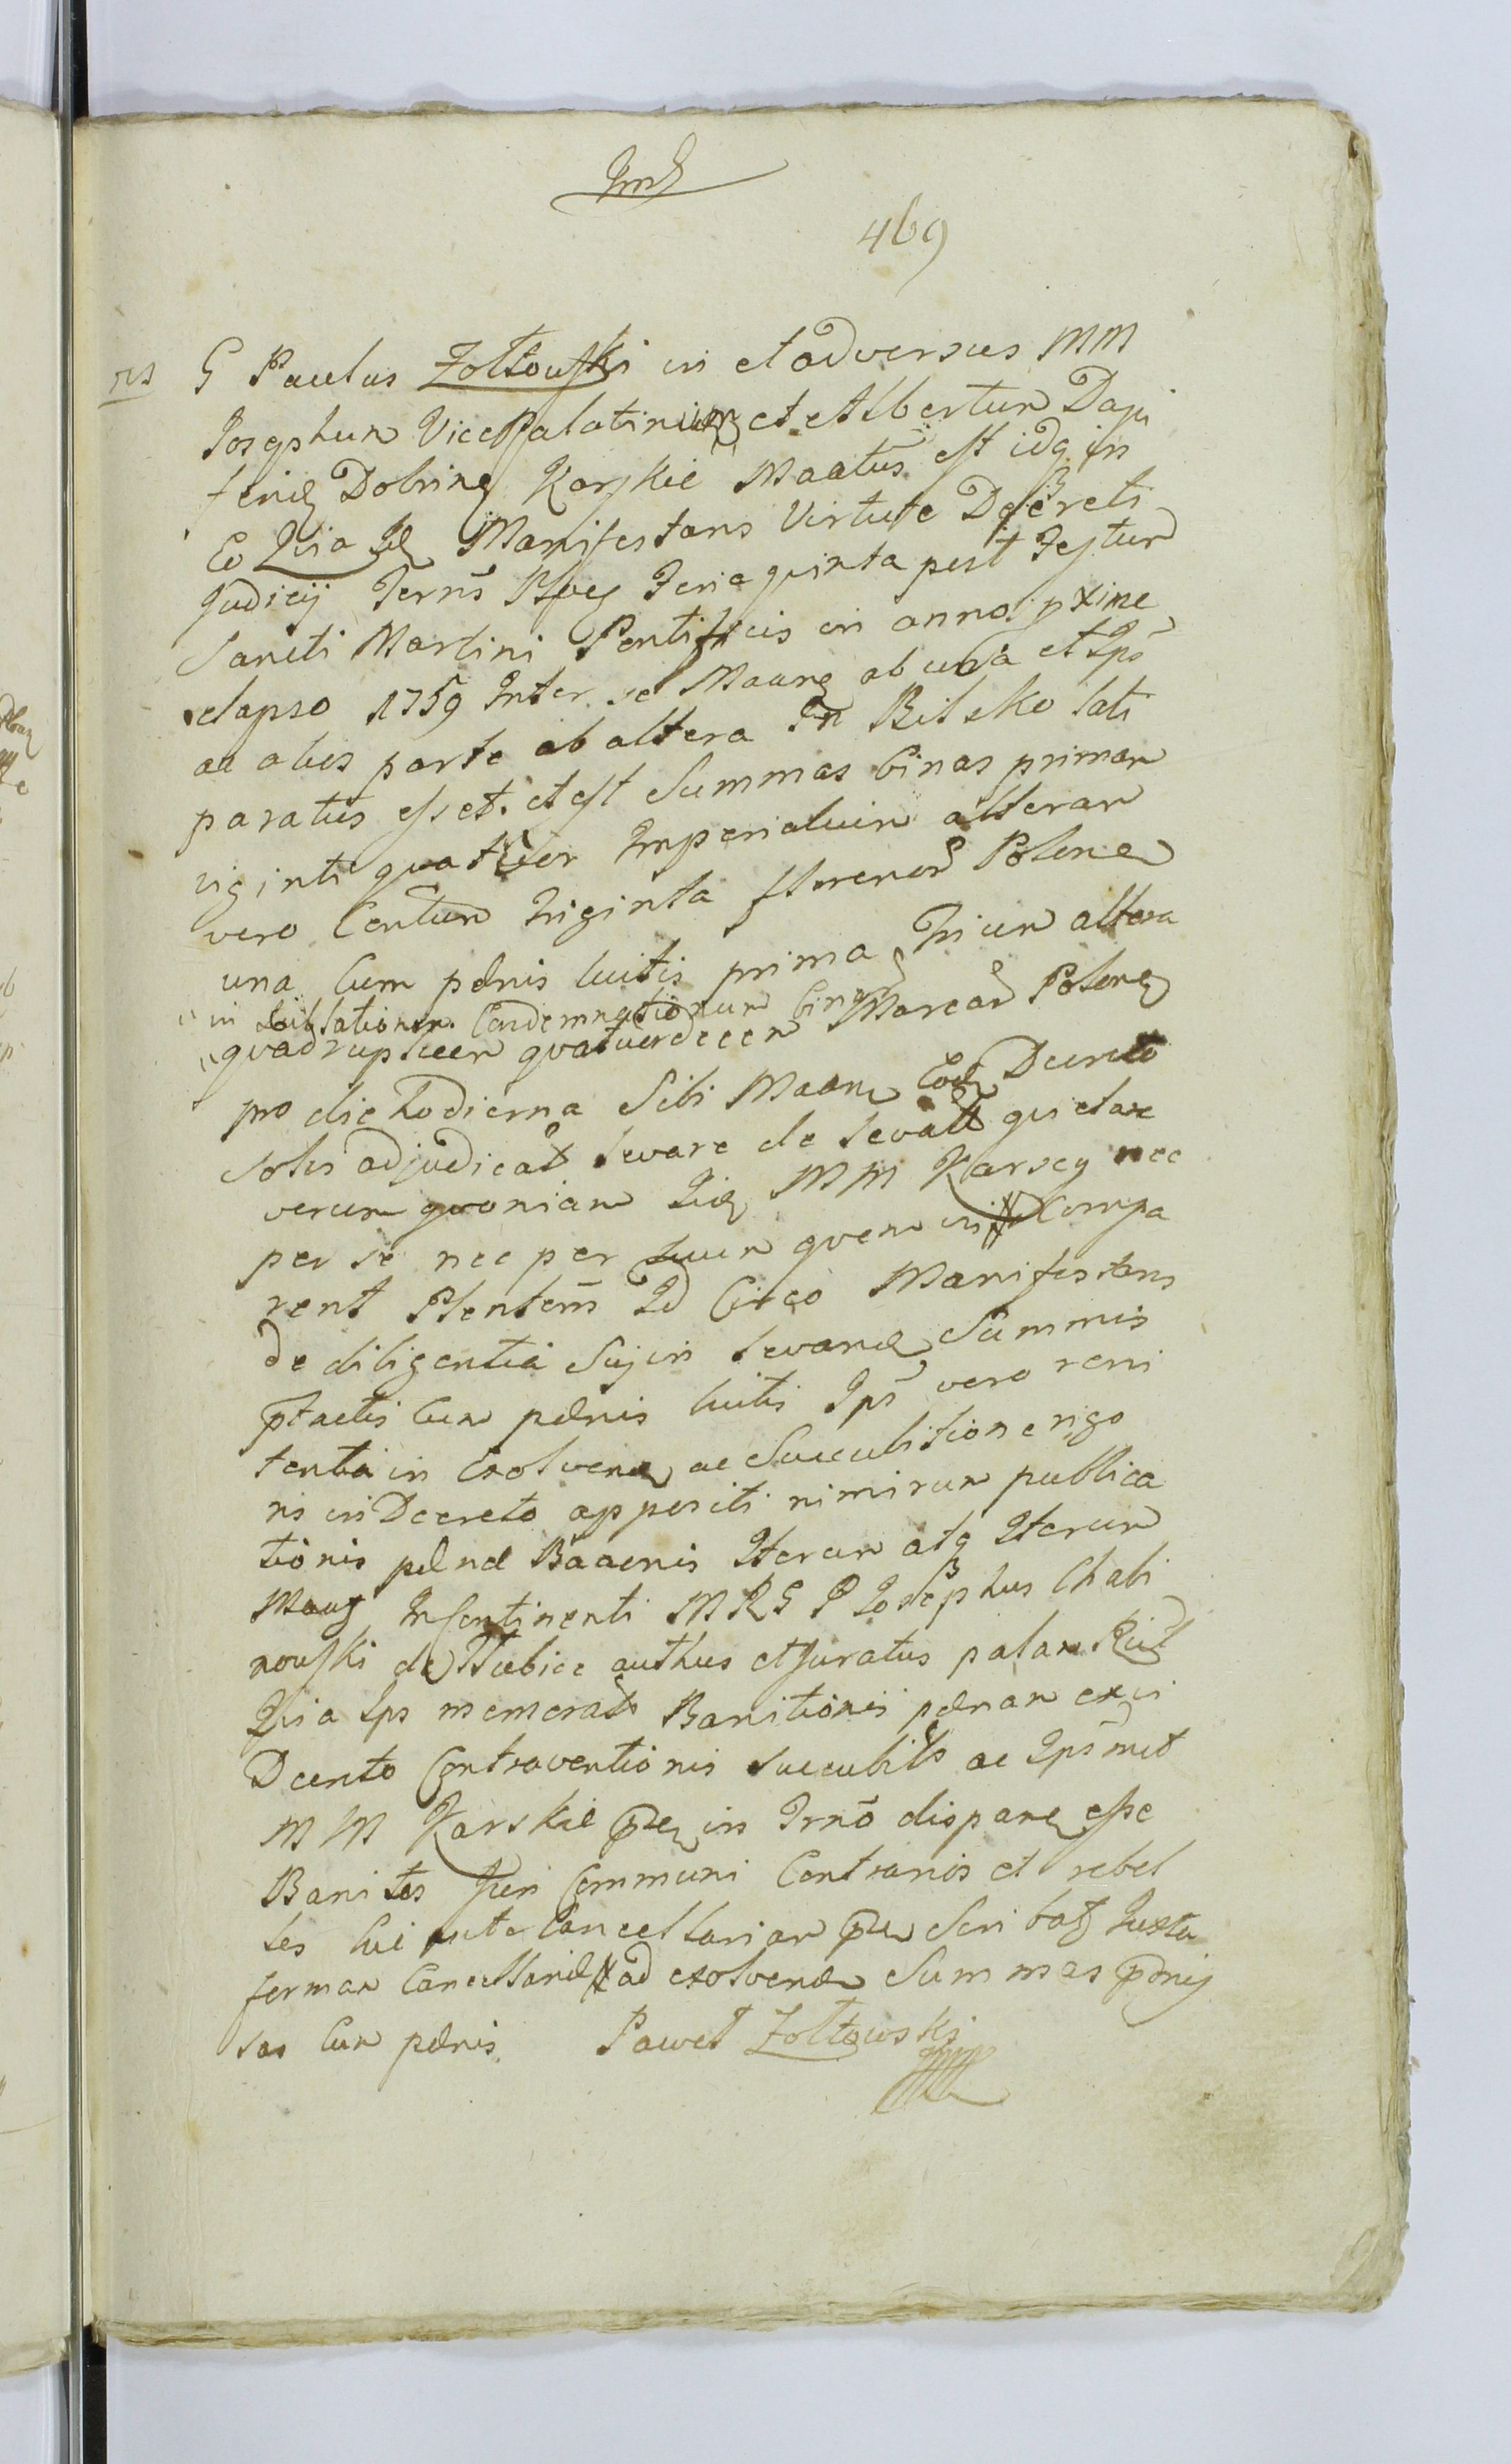 469
G Paulus Zołtowski in et adversus MM
Josephum Vice Palatinum et Albertum Dapi
feru Dobrine Karskie Maatus est idq in
Eo Quia Id Manifestans Virtute Decreti
Judicij Terris Feria quinta post Festum
Sancti Martini Pontificis in anno pxime
elapso 1759 Inter se Maane ab una et Ips
ac alios parte ab altera In Bilsko lati
paratus esset et est Summas binas primam
viginti quatuor Imperialium alteram
vero Centum triginta florenor Polone
una Cum pænis luitis prima Trium altera
in Sublationem Condemnationum binar
quadruplicem quatuordecem Marcar Polone
pro die hodierna Sibi Maane Eod Decreto
solvi adjudicat levare de levatt quietare
verum quoniam Iid MM Karscy nec
per se nec per suum quem in Compa
rent Plentem Id Circo Manifestans
de diligentia Sui in levand Summis
ptactis Cum pænis luitis Ips vero reni
tentia in Exolvend ac Succubitione rigo
ris in Decreto appositi nimirum publica
tionis pænæ Baaenis Iterum atq Iterum
Maaus Incontinenti MRG P Josephus Chabi
nowski de authus et Juratus palam
Quia Ips memorat Banitionis pænam ex vi
Decreto Contraventionis succubits ac Ipsmet
MM Karskie in Trno dispare esse
Banitos Juri Communi Contrarios et rebel
les hic ante Cancellariam Scribatq Juxta
formam Cancellariæ ad exolvend Summas pmis
sas Cum pænis Paweł Zołtowski